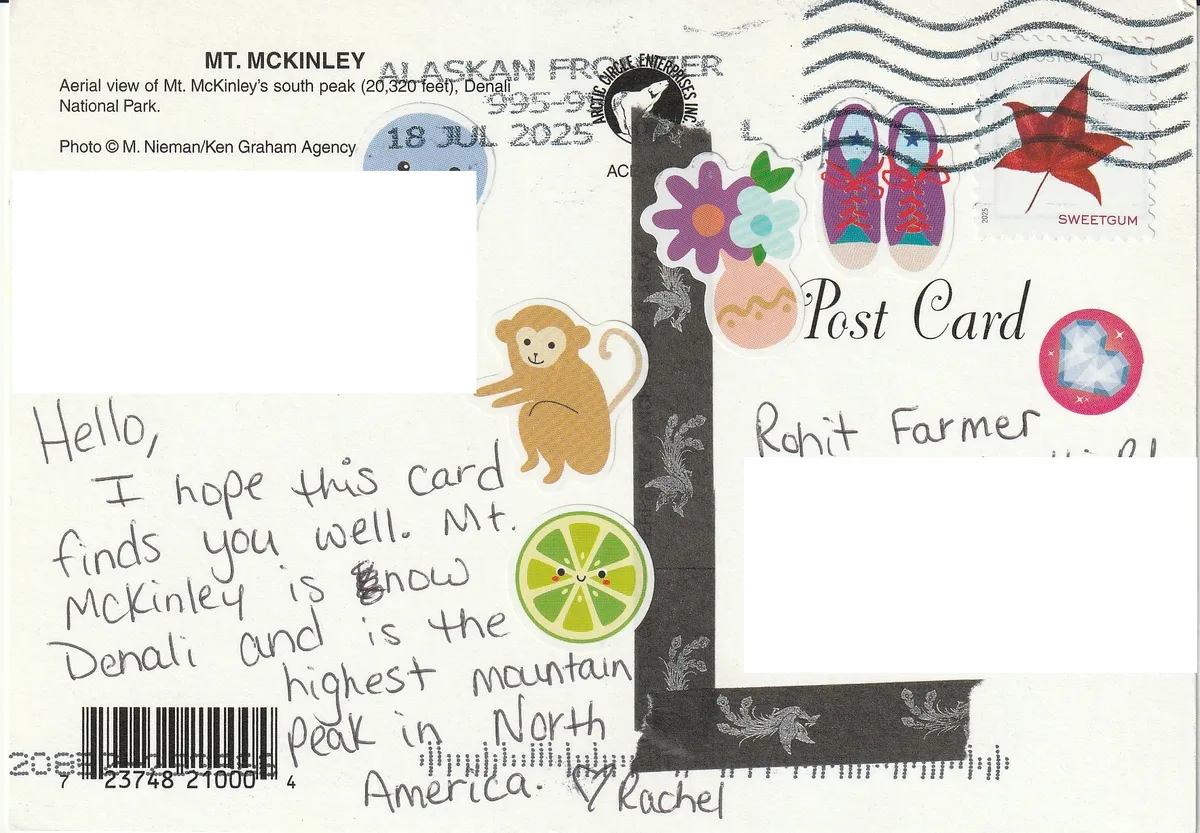 MT. MCKINLEY
Aerial view of Mt. McKinley's south peak (20,320 feet), Denali
National Park.
Photo © M. Nieman/Ken Graham Agency
ALASKAN FRONTIER
18 JUL 2025
ARCTIC CIRCLE ENTERPRISES INC.
USA POSTCARD
2025
SWEETGUM
Post Card
Hello,
I hope this card
finds you well. Mt.
McKinley is now
Denali and is the
highest mountain
peak in North
America. ♡ Rachel
Rohit Farmer
7 23748 21000 4